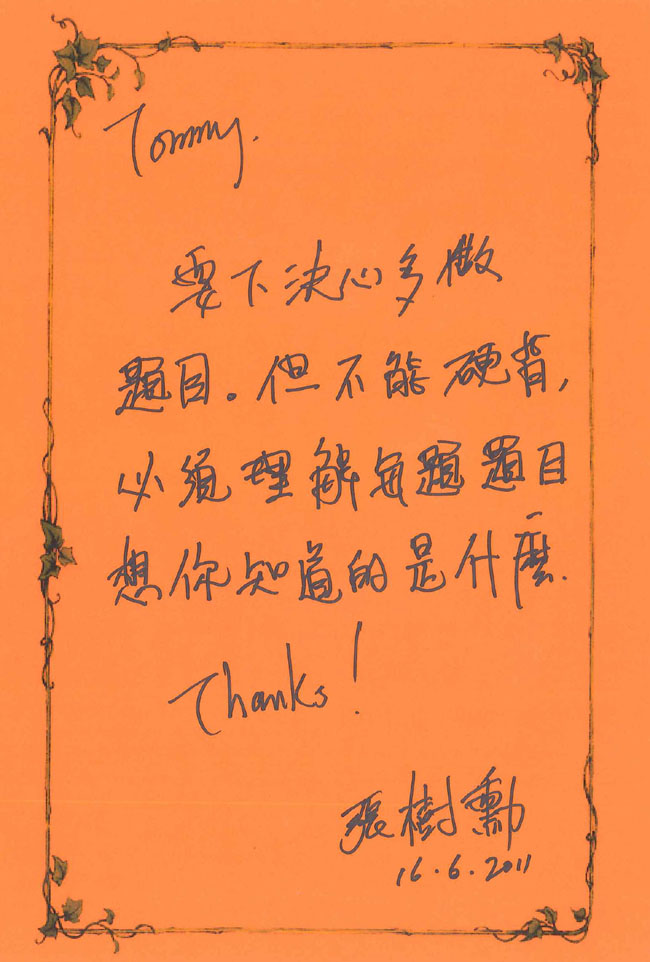 Tommy.
要下決心多做
題目。但不能硬背,
必須理解每題題目
想你知道的是什麼.
Thanks!
張樹勳
16.6.2011